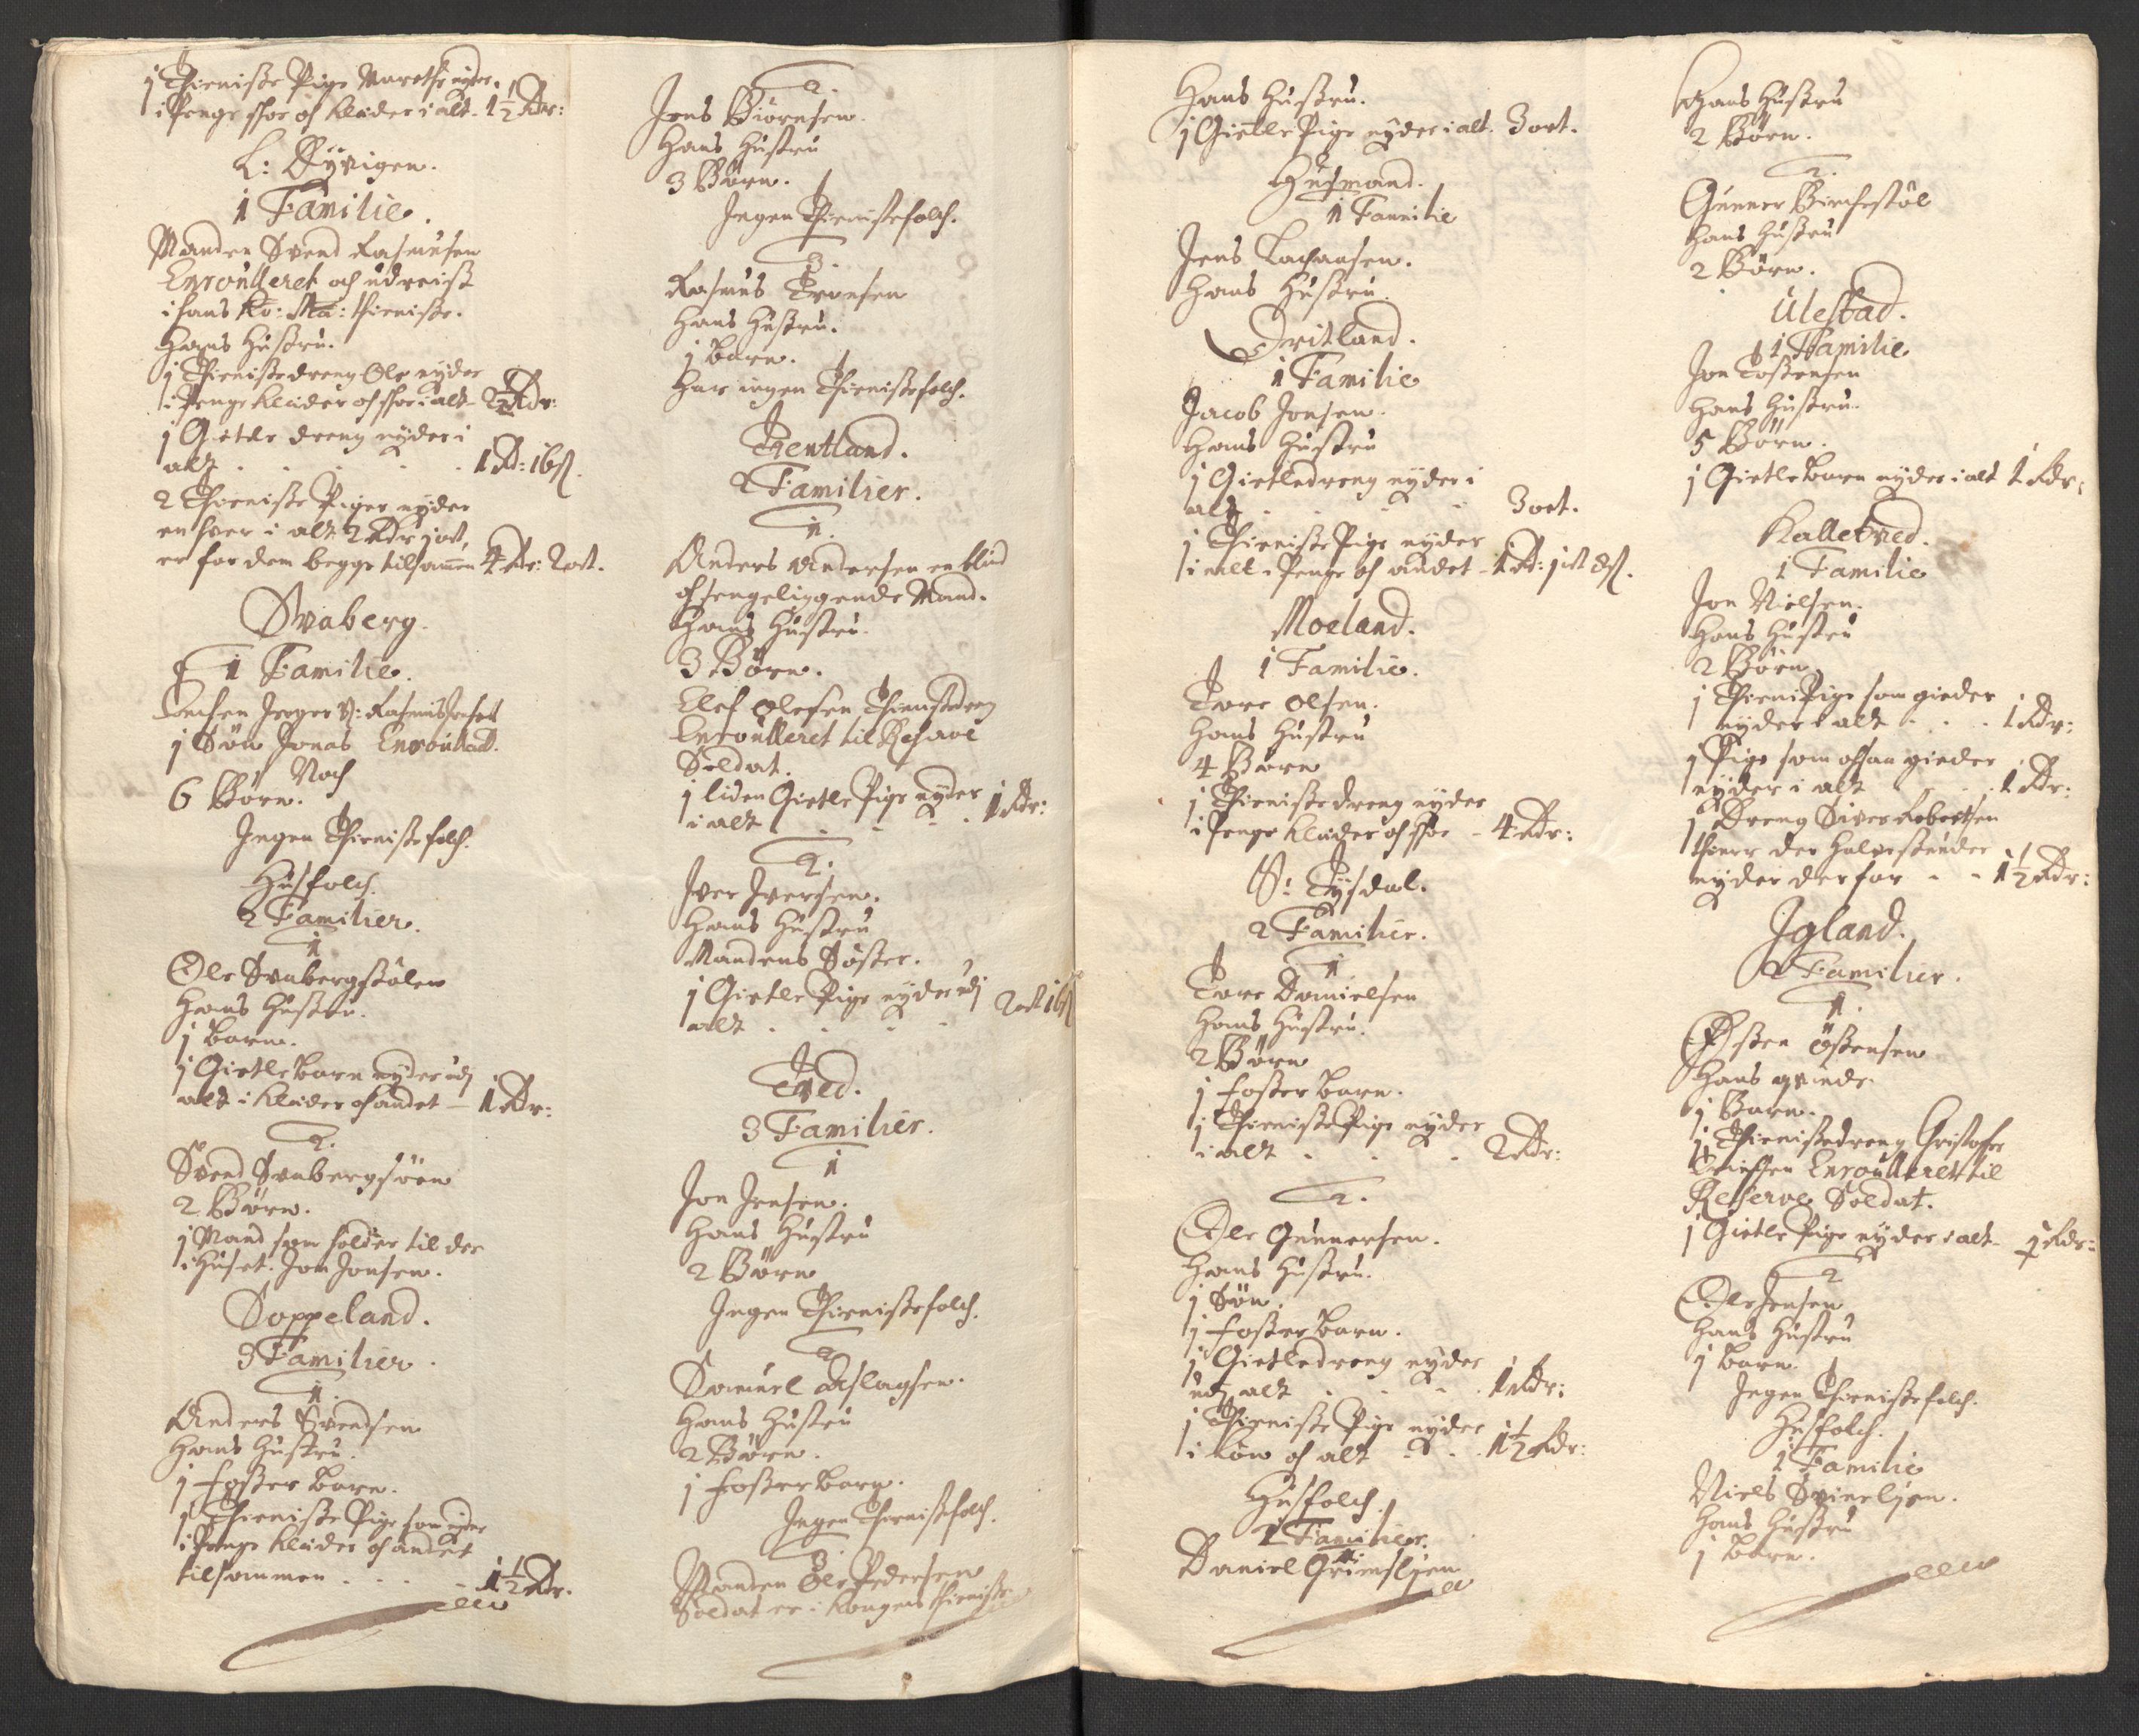 1 Thieniste Pige Marethe nyder
i Penge skoe och Kleider i alt - 1½ Rdr:
L: Dyvigen.
1 Familie.
Manden Svend Rasmusen
Enroulleret och udreist
i hans Ko: Ma: thieniste.
Hans Hustru.
1 Thienistedreng Ole nyder
i Penge Kleider och skoe i alt - 2½ Rdr:
1 Gietle dreng nyder i
alt . . . . 1 Rd: 16 s.
2 Thieniste Piger nyder
en hver i alt 2 Rdr 1 ort,
er for dem begge tilsammen 4 Rdr: 2 ort.
Svaberg.
1 Familie.
6 Børn. Noch
1 Søn Jonas Enroulleret.
Ingen Thieniste folch.
Husfolch.
2 Familier.
1
Ole Svabergstølen
Hans Hustru.
1 barn.
1 Gietlebarn nyder udj
alt i Kleider och andet - 1 Rdr:
2.
Svend Svabergsøen
2 Børn.
1 Mand som holder til der
i Huset. Jon Jonsen.
Soppeland.
3 Familier.
1.
Anders Svendsen
Hans Hustru.
1 foster barn.
1 Thieniste Pige som nyder
i Penge Kleider och andet
tilsammen . . . - 1½ Rdr.
2.
Jens Biørnsen.
Hans Hustru
3 Børn.
Ingen Thienistefolch.
3.
Rasmus Tronsen
Hans Hustru.
1 barn.
Har ingen Thienistefolch.
Tentland.
2 Familier.
1.
Anders Andersen en blind
och sengeliggende Mand.
Hans Hustru.
3 Børn.
Elef Olesen Thienistedreng
Enroulleret til Reserve
Soldat.
1 liden Gietle Pige nyder
i alt . . . . 1 Rdr:
2.
Iver Iversen.
Hans Hustru
Mandens Søster.
1 Gietle Pige nyder udj
alt . . . . 2 ort 16 s
Tved.
3 Familier.
1
Jon Jensen.
Hans Hustru
2 Børn
Ingen Thienistefolch.
2
Samuel Aslagsen.
Hans Hustru
2 Børn.
1 fosterbarn.
Ingen Thienistefolch.
3.
Manden Ole Pedersen
Soldat er i Kongens thieniste
Hans Hustru.
1 Gietle Pige nyder i alt. 3 ort.
Husmand.
1 Familie
Jens
Hans Hustru.
Dritland.
1 Familie
Jacob Jonsen.
Hans Hustru
1 Gietledreng nyder i
alt . . . . 3 ort.
1 Thieniste Pige nyder
i alt i Penge och andet - 1 Rd: 1 ort 8 s.
Moeland.
1 Familie.
Tore Olsen.
Hans Hustru
4 Børn
1 Thienistedreng nyder
i Penge Kleider och skoe - 4 Rdr:
S: Tysdal.
2 Familier.
1.
Tore Danielsen
Hans Hustru.
2 Børn
1 fosterbarn.
1 Thieniste Pige nyder
i alt . . . 2 Rdr:
2.
Ole Gunnersen.
Hans Hustru.
1 Søn.
1 fosterbarn.
1 Gietledreng nyder
udj alt . . . 1 Rdr:
1 Thieniste Pige nyder
i Løn och alt . . . 1½ Rdr:
Husfolch.
2 Familier.
1.
Daniel Grimsljen
Hans Hustru
2 Børn.
2.
Gunner Birchestøl
Hans Hustru
2 Børn.
Ulestad.
1 Familie
Jon Tostensen
Hans Hustru.
5 Børn.
1 Gietlebarn nyder i alt 1 Rdr:
Kalletved.
1 Familie
Jon Nielsen.
Hans Hustru
2 Børn
1 ThienPige som gieder
nyder i alt . . . 1 Rdr:
1 Pige som ochsaa gieder
nyder i alt . . . 1 Rdr:
1 Dreng Siver Robertsen
thiener der halve
nyder derfor . . 1½ Rdr:
Igland.
2 Familier.
1.
Østen Østensen
Hans qvinde.
1 Barn.
1 Thienistedreng Christoffer
Enroulleret til
Reserve Soldat.
1 Gietle Pige nyder i alt - 1 Rdr:
2
Ole Jensen
Hans Hustru
1 barn.
Ingen Thienistefolch.
Husfolch.
1 Familie
Niels Svineljen.
Hans Hustru
1 barn.